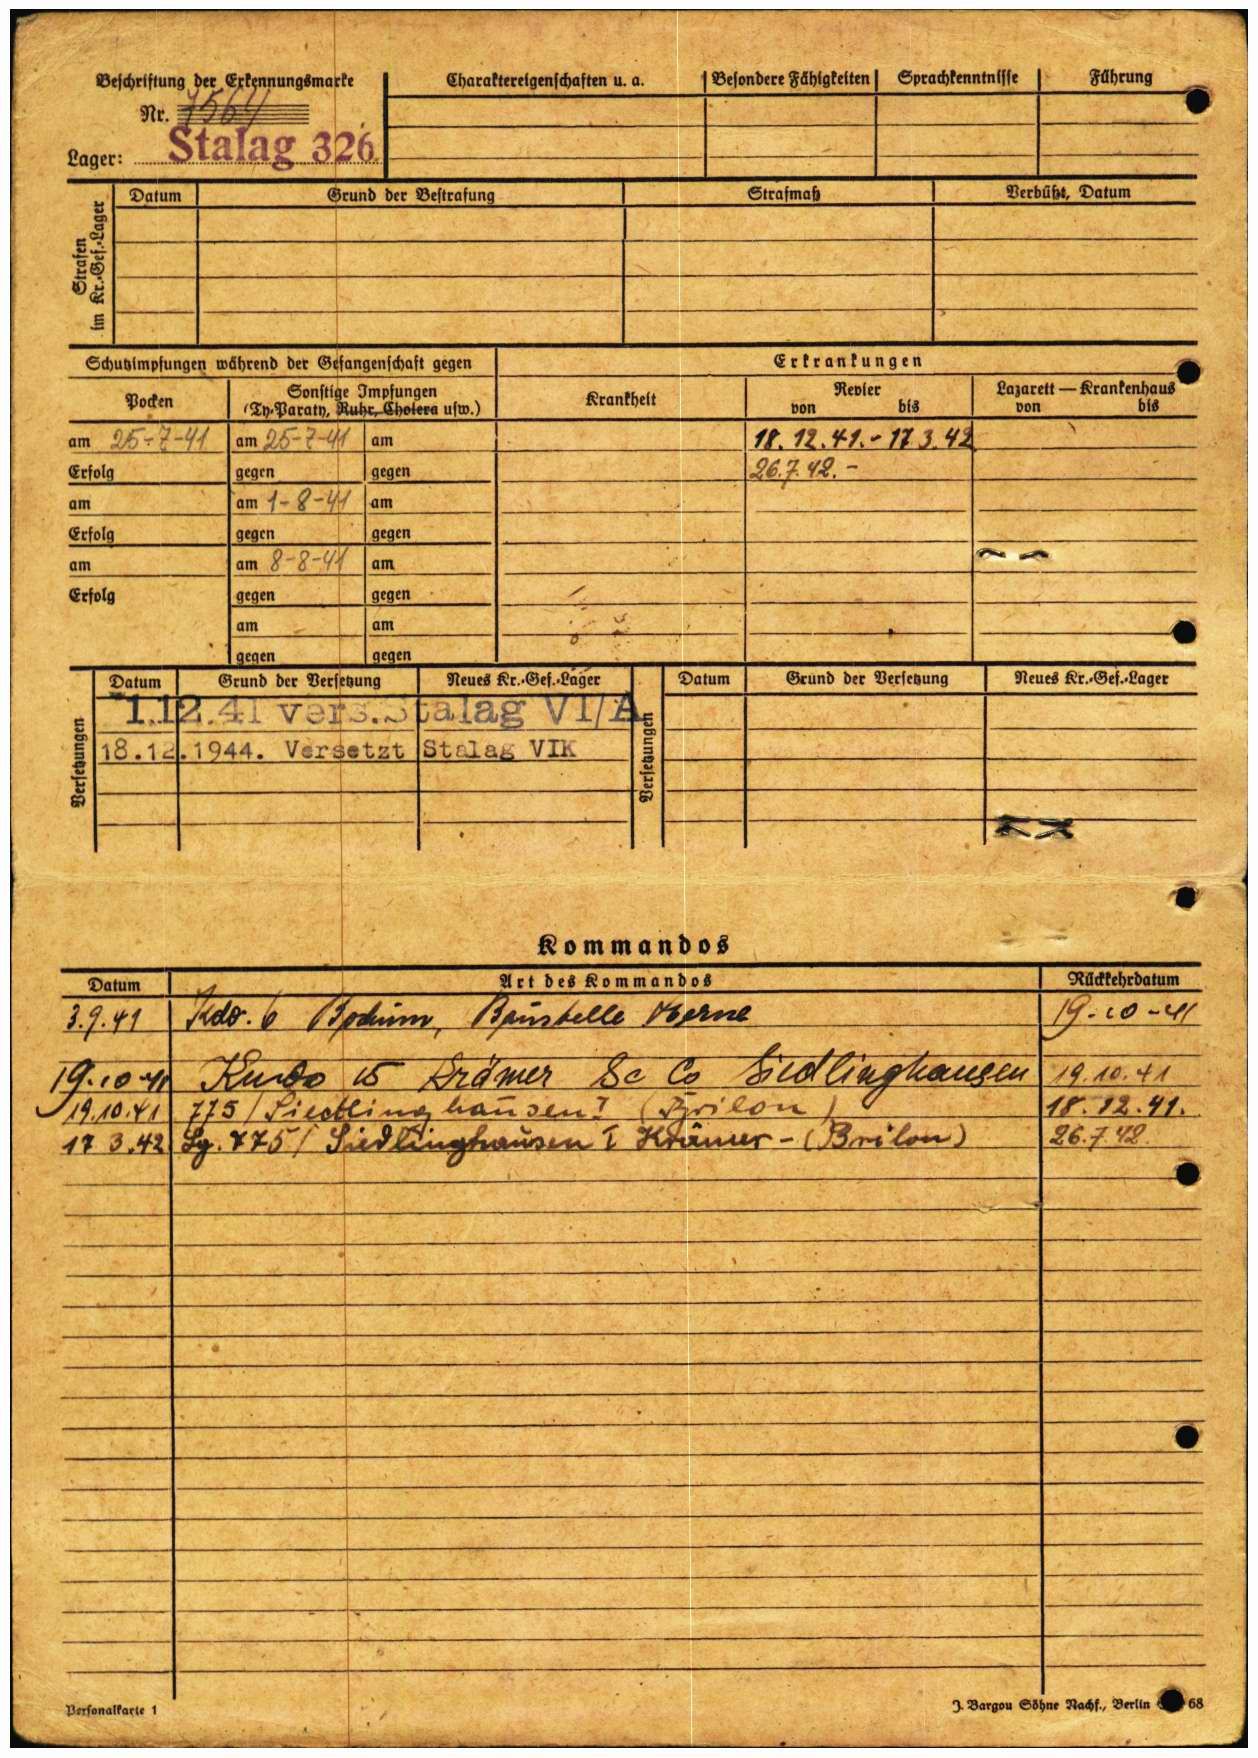 Beschriftung der Erkennungsmarke
Nr. 7564
Lager: Stalag 326
Charaktereigenschaften u. a.
Besondere Fähigkeiten
Sprachkenntnisse
Führung
Strafen im Kr.-Gef.-Lager
Datum
Grund der Bestrafung
Strafmaß
Verbüßt, Datum
Schutzimpfungen während der Gefangenschaft gegen
Erkrankungen
Pocken
Sonstige Impfungen
(Ty.-Paraty, Ruhr, Cholera usw.)
Krankheit
Revier
von bis
Lazarett — Krankenhaus
von bis
am 25-7-41 am 25-7-41 am
18.12.41.-17 3.42
Erfolg gegen gegen
26.7.42.-
am am 1-8-41 am
Erfolg gegen gegen
am am 8-8-41 am
Erfolg gegen gegen
am am
gegen gegen
Versetzungen
Datum Grund der Versetzung Neues Kr.-Gef.-Lager
1.12.41 vers. Stalag VI/A
18.12.1944. Versetzt Stalag VIK
Versetzungen
Datum Grund der Versetzung Neues Kr.-Gef.-Lager
Kommandos
Datum Art des Kommandos Rückkehrdatum
3.9.41 Kdo. 6 Bochum, Baustelle Herne 19-10-41
19.10.41 15 Krämer & Co Siedlinghausen 19.10.41
19.10.41 775/Siedlinghausen I (Brilon) 18.12.41.
17 3.42 Lg. 775/ Siedlinghausen I Krämer-(Brilon) 26.7.42
Personalkarte 1
J. Bargou Söhne Nachf., Berlin 68